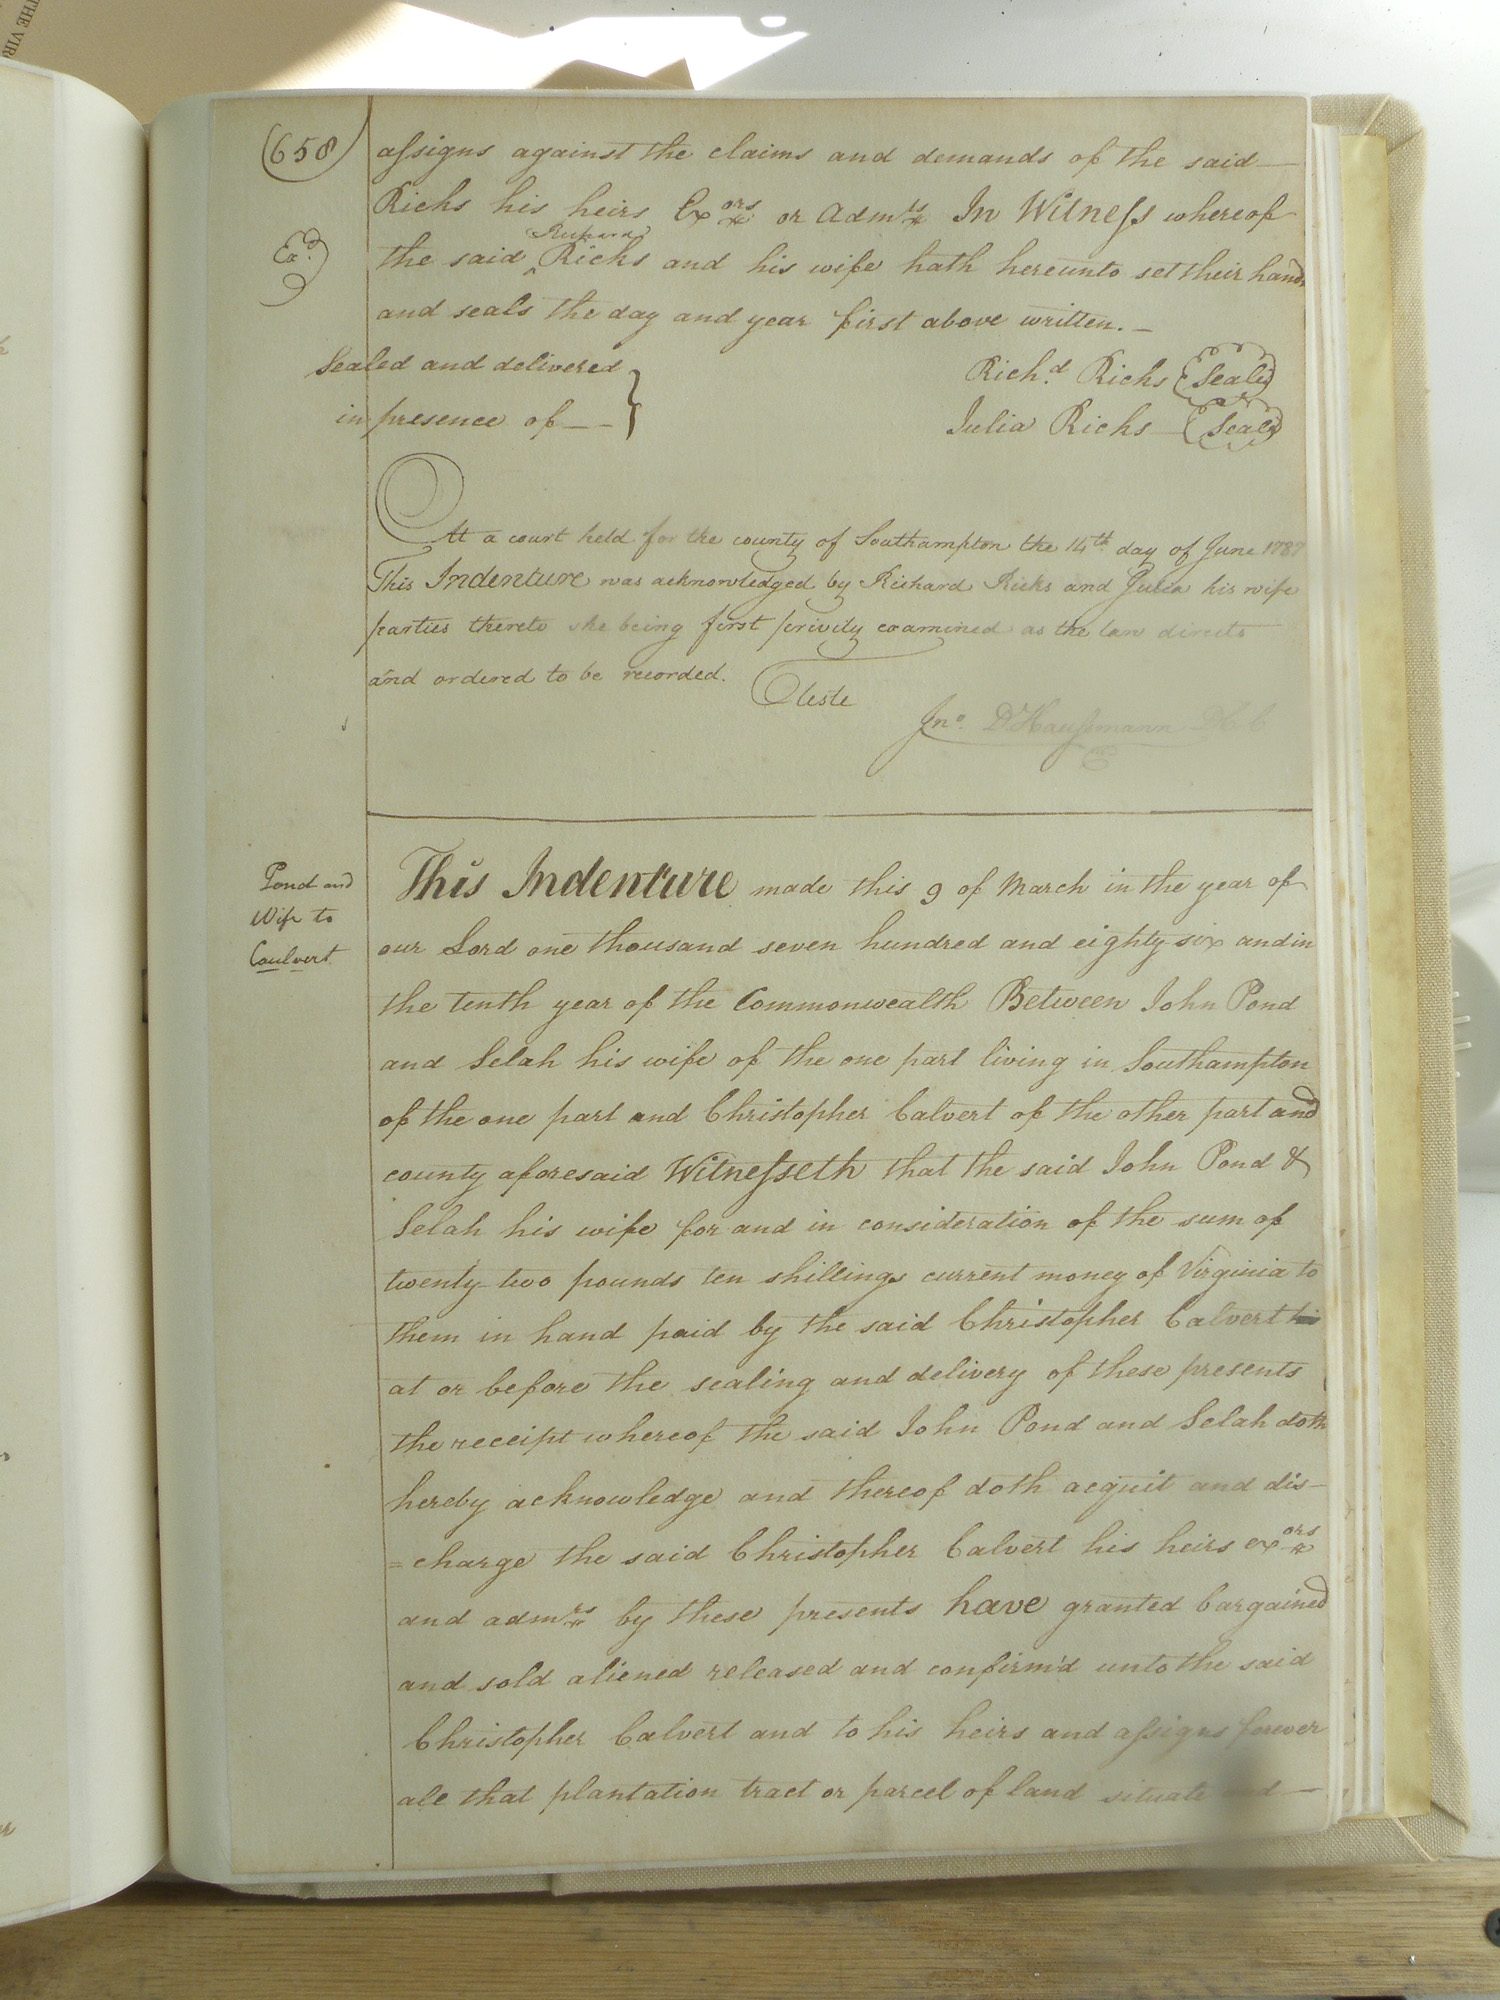 THE VIR
658
assigns against the claims and demands of the said
Ricks his heirs Exors or Admrs In Witness whereof
Exd
Richard
the said ^ Ricks and his wife hath hereunto set their hands
and seals the day and year first above written.
Sealed and delivered
Richd. Ricks Seal
in presence of
Julia Ricks Seal
At a court held for the county of Southampton the 14th day of June 1787
This Indenture was acknowledged by Richard Ricks and Julia his wife
parties thereto she being first privily examined as the law directs
and ordered to be recorded.
Teste
Jno. D Haussmann
Pond and
Wife to
Caulvert
This Indenture made this 9 of March in the year of
our Lord one thousand seven hundred and eighty six and in
the tenth year of the Commonwealth Between John Pond
and Selah his wife of the one part living in Southampton
of the one part and Christopher Calvert of the other part and
county aforesaid Witnesseth that the said John Pond &
Selah his wife for and in consideration of the sum of
twenty two pounds ten shillings current money of Virginia to
them in hand paid by the said Christopher Calvert
at or before the sealing and delivery of these presents
the receipt whereof the said John Pond and Selah doth
hereby acknowledge and thereof doth acquit and dis-
=charge the said Christopher Calvert his heirs exors
and admrs by these presents have granted bargained
and sold aliened released and confirm'd unto the said
Christopher Calvert and to his heirs and assigns forever
all that plantation tract or parcel of land situate and